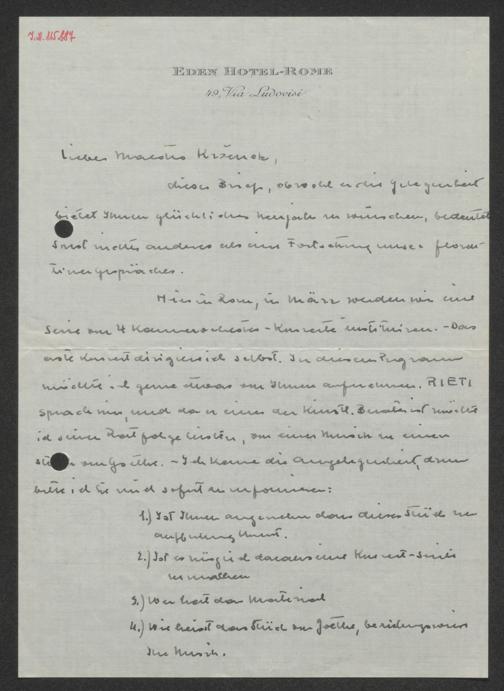 I.N. 115.887
EDEN HOTEL-ROME
49, Via Ludovisi
Lieber Maestro Křenek,
dieser Brief, obwohl er die Gelegenheit
bietet Ihnen glückliches Neujahr zu wünschen, bedeutet
sonst nichts anderes als eine Fortsetzung unserer floren-
tinergespräches.
Hier in Rom, in März werden wir eine
Serie von 4 Kammerorchester-Konzerte instituiren. - Das
erste Konzert dirigiere ich selbst. In diesem Programm
möchte ich gerne etwas von Ihnen aufnehmen. RIETI
sprach mir, und da er einer der künstl. Berater ist möchte
ich seiner Rat folge leisten, von einer Musik zu einem
von Goethe. - Ich kenne die Angelegenheit, drum
bitte ich Sie mich sofort zu informieren:
1.) Ist Ihnen angenehm dass dieses Stück zur
aufführung kommt.
2.) Ist es möglich daraus eine Konzert-Suite
zu machen
3.) Wer hat das Material
4.) Wie heisst das Stück von Goethe, beziehungsweise
Ihre Musik.